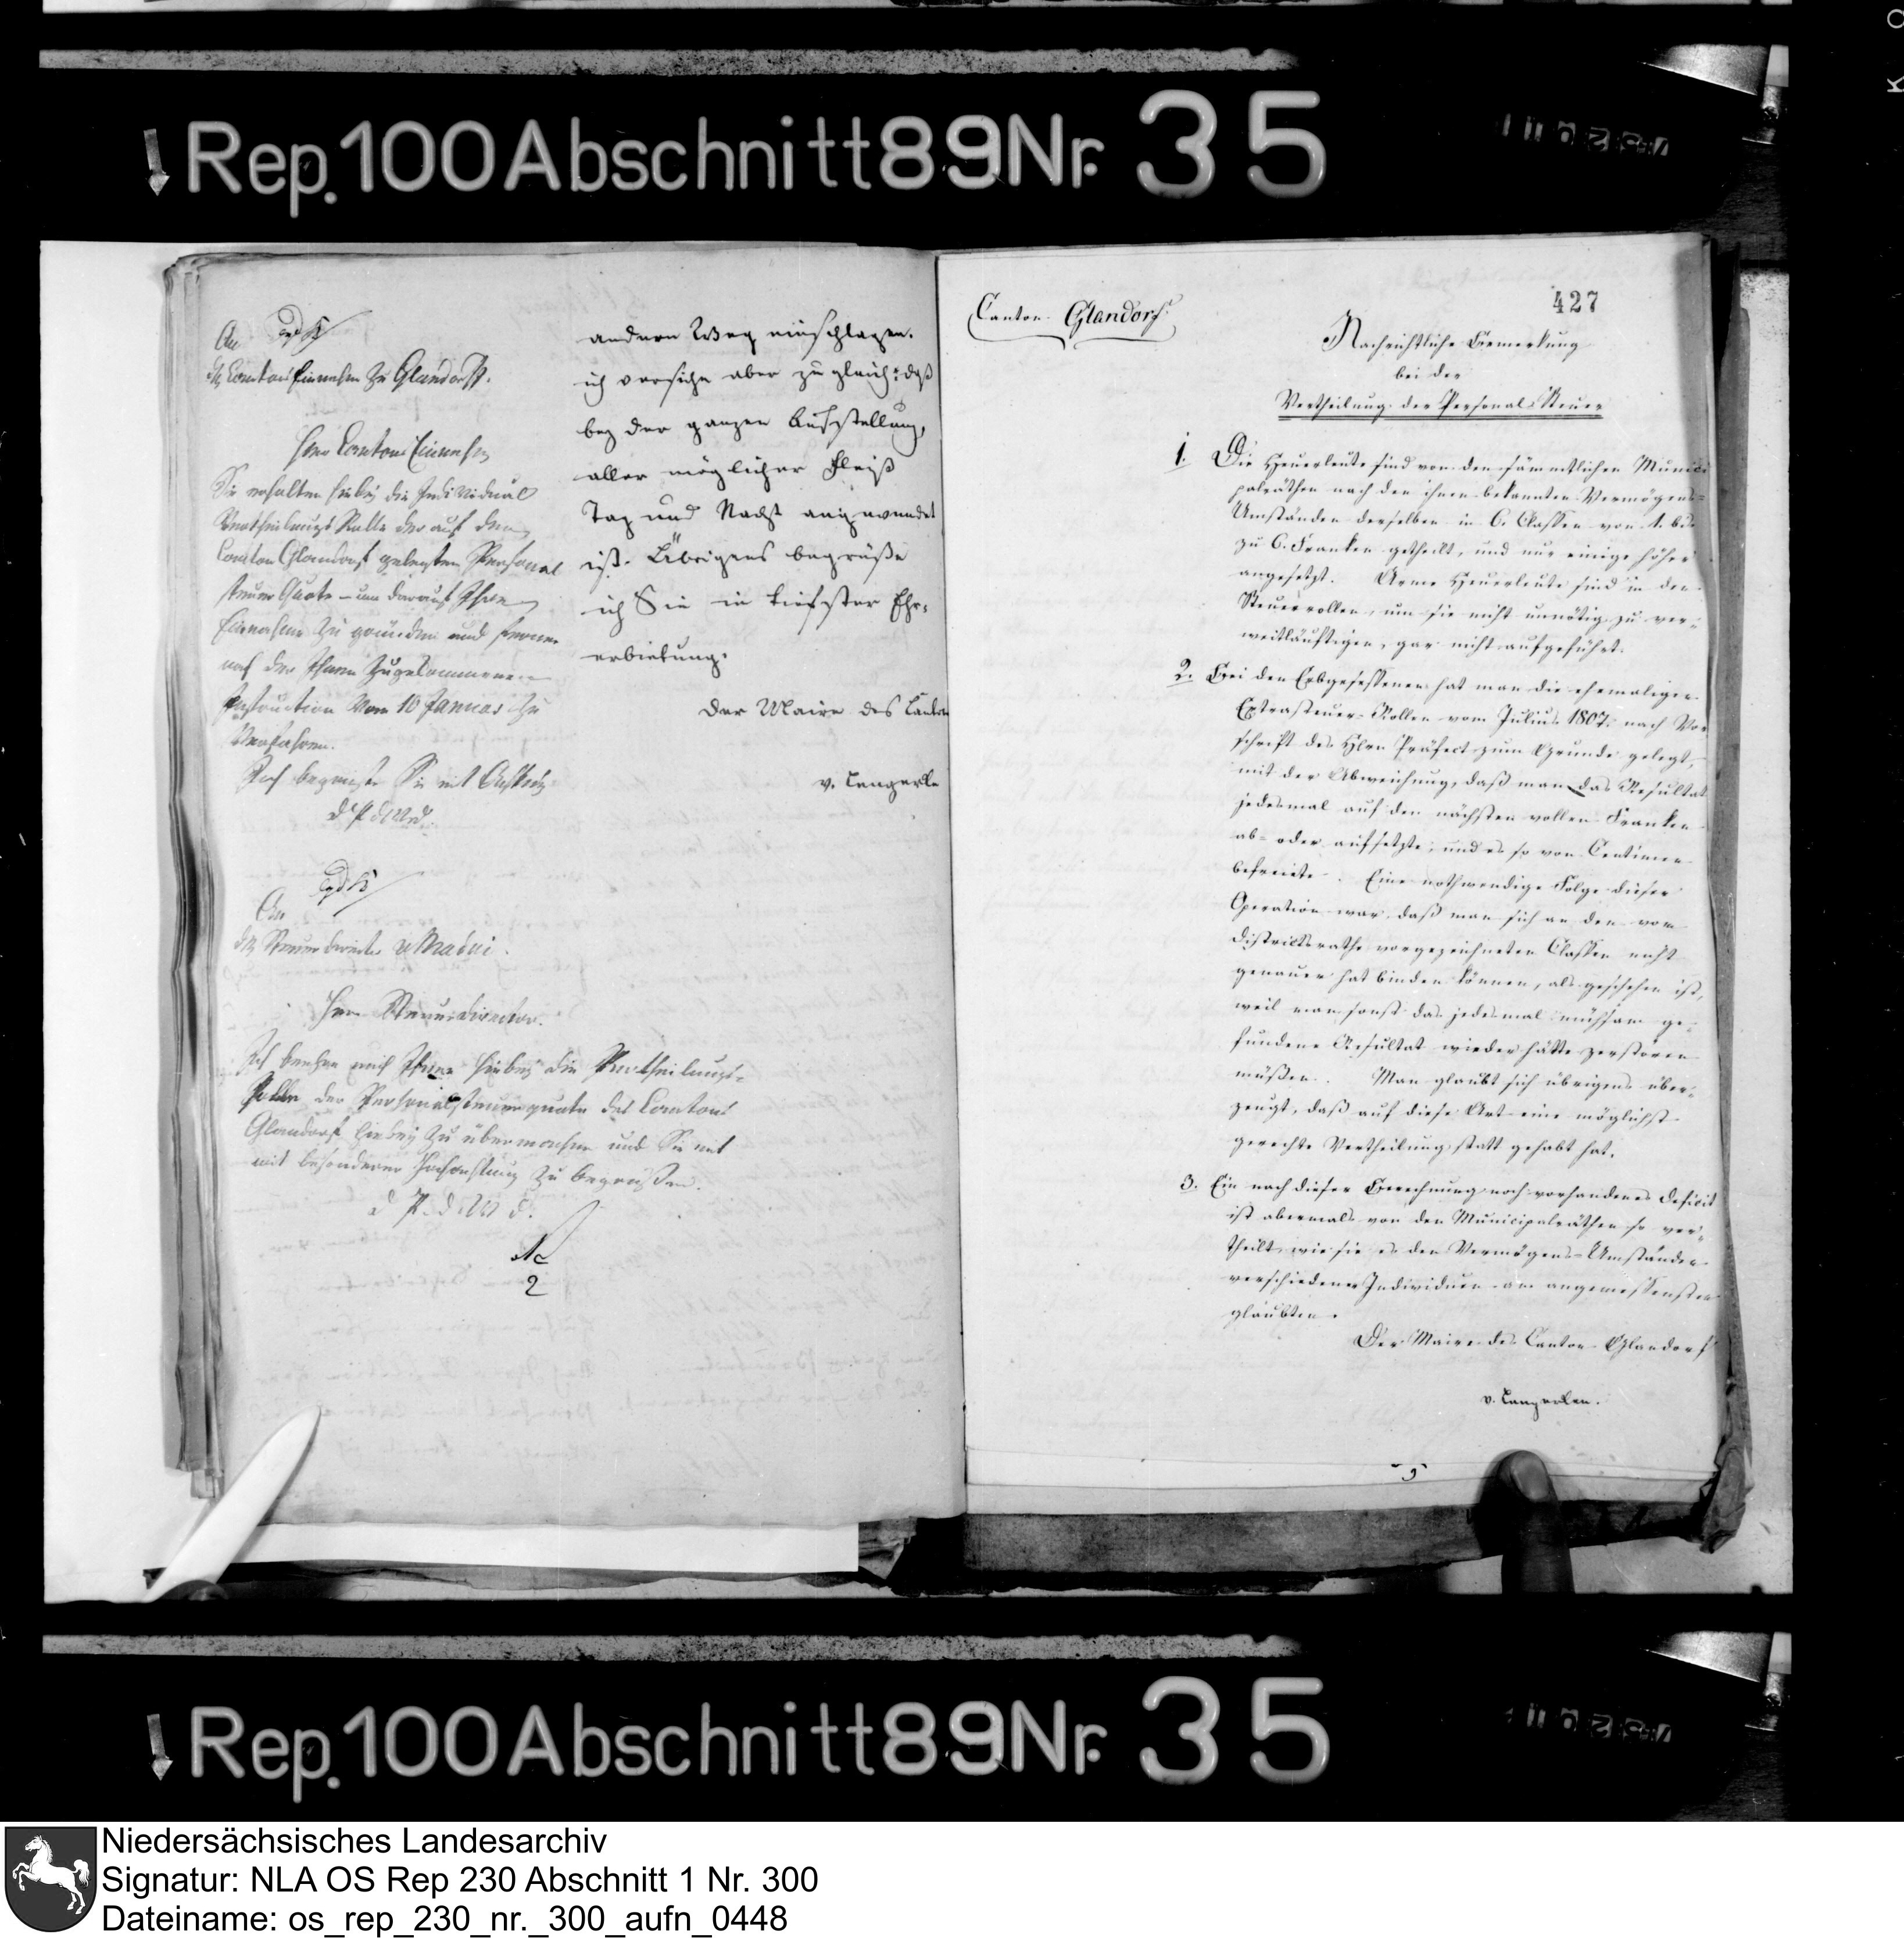 Rep. 100 Abschnitt 89 Nr. 35
An
den Canton Einnehmer zu Glandorff.
Herr Canton Einnehmer
Sie erhalten hiebei die Individual
Vertheilungs Rolle der auf den
Canton Glandorf gelegten Personal
steuer Quote – um darauf Ihre
Einnahme zu gründen und ferner
nach der Ihnen zugekommenen
Instruction vom 10 Januar zu
verfahren.
Ich begrüße Sie mit Achtung
d P d W d.
An
den Steuer Director v Madui.
Herr Steuerdirector.
Ich beehre mich Ihnen hiebey die Vertheilungs-
Rolle der Personalsteuerquote des Cantons
Glandorf hiebey zu übermachen und Sie mit
mit besonderer Hochachtung zu begrüßen.
d P. d. W d.
2
andern Weg einschlagen.
ich versichre aber zugleich: daß
bey der ganzen Aufstellung,
aller möglicher Fleiß
Tag und Nacht angewendet
ist. Übrigens begrüße
ich Sie in tiefster Ehr-
erbietung.
Der Maire des Canton
v. Lengerke
427
Canton Glandorf.
Nachrichtliche Bemerkung
bei der
Vertheilung der Personal-Steuer
1. Die Heuerleute sind von den sämmtlichen Munici
palräthen nach den ihnen bekannten Vermögens-
Umständen derselben in 6. Classen von 1. bis
zu 6. Franken getheilt, und nur einige höher
angesetzt. Arme Heuerleute sind in den
Steuerrollen, um sie nicht unnötig zu ver-
weitläuftigen, gar nicht aufgeführt.
2. Bei den Erbgesessenen hat man die ehemaligen
Extrasteuer-Rollen vom Julius 1807. nach Vor
schrift des Hrn Präfect zum Grunde gelegt,
mit der Abweichung, daß man das Resultat
jedesmal auf den nächsten vollen Franken
ab- oder aufsetzte, und es so von Centimen
befreite. Eine nothwendige Folge dieser
Operation war, daß man sich an den vom
Districtsrathe vorgezeichneten Classen nicht
genauer hat binden können, als geschehen ist,
weil man sonst das jedesmal mühsam ge-
fundene Resultat wieder hätte zerstören
müßen. Man glaubt sich übrigens über-
zeugt, daß auf diese Art eine möglichst
gerechte Vertheilung statt gehabt hat.
3. Ein nach dieser Berechnung noch vorhandenes Deficit
ist abermals von den Municipalräthen so ver-
theilt, wie sie es den Vermögens-Umständen
verschiedener Individuen am angemessensten
glaubten.
Der Maire des Canton Glandorf
v. Lengerken.
Rep. 100 Abschnitt 89 Nr. 35
Niedersächsisches Landesarchiv
Signatur: NLA OS Rep 230 Abschnitt 1 Nr. 300
Dateiname: os_rep_230_nr._300_aufn_0448